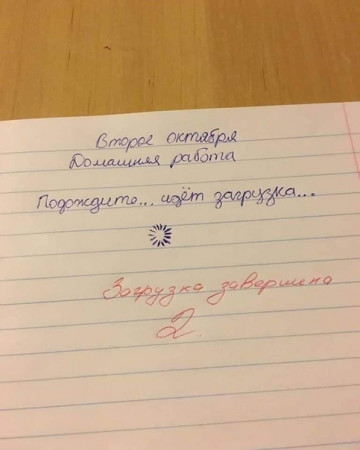 Второе октября
Домашняя работа
Подождите... идёт загрузка...
Загрузка завершена
2.